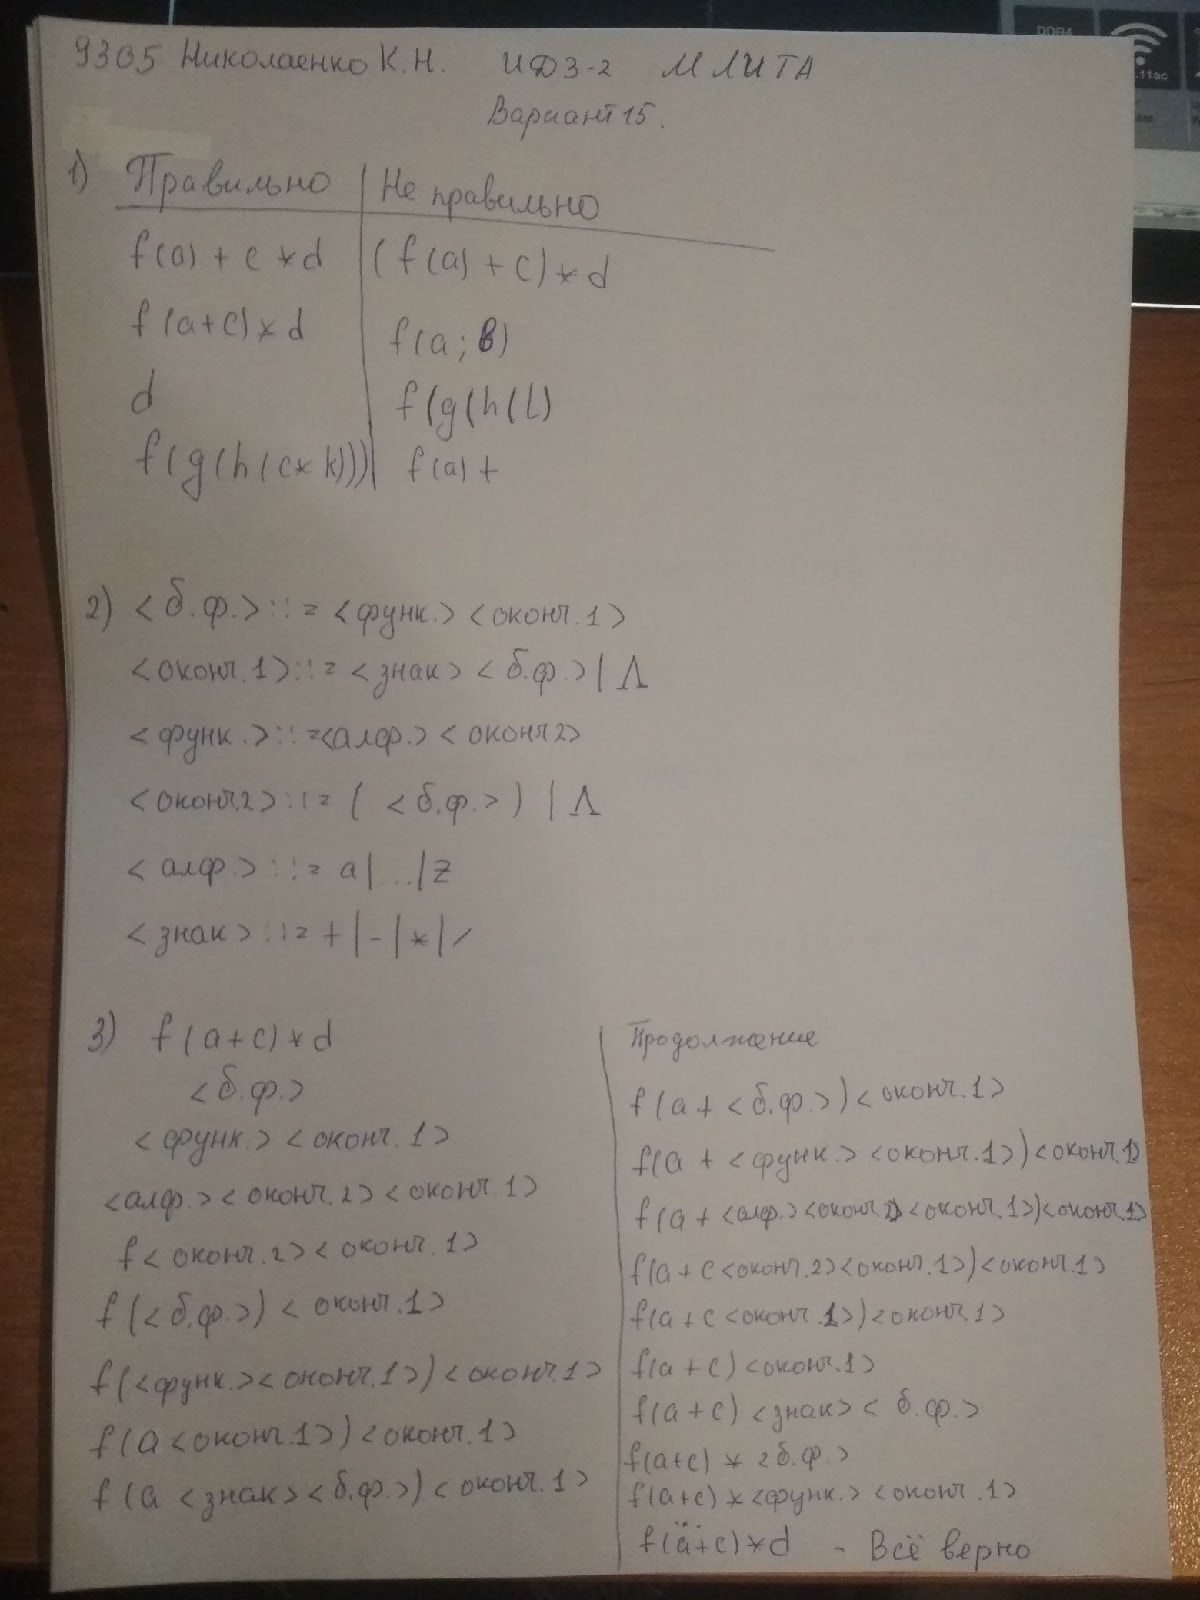 9305 Николаенко К.Н. ИДЗ-2 МЛИТА
Вариант 15.
1) Правильно | Не правильно
f(a) + c * d | (f(a) + c) * d
f(a+c) * d | f(a; в)
d | f(g(h(l)
f(g(h(c*k))) | f(a) +
2) <б.ф.> ::= <функ.> <оконч.1>
<оконч.1> ::= <знак> <б.ф.> | Λ
<функ.> ::= <алф.> <оконч2>
<оконч.2> ::= ( <б.ф.> ) | Λ
<алф.> ::= a|...|z
<знак> ::= +|-|*|/
3) f(a+c)*d
<б.ф.>
<функ.> <оконч.1>
<алф.> <оконч.2> <оконч.1>
f<оконч.2> <оконч.1>
f(<б.ф.>) <оконч.1>
f(<функ.><оконч.1>)<оконч.1>
f(a<оконч.1>)<оконч.1>
f(a <знак><б.ф.>)<оконч.1>
Продолжение
f(a + <б.ф.>)<оконч.1>
f(a + <функ.><оконч.1>)<оконч.1>
f(a + <алф.><оконч.2><оконч.1>)<оконч.1>
f(a+c<оконч.2><оконч.1>)<оконч.1>
f(a+c<оконч.1>)<оконч.1>
f(a+c)<оконч.1>
f(a+c)<знак><б.ф.>
f(a+c) * <б.ф.>
f(a+c) * <функ.> <оконч.1>
f(a+c)*d - Всё верно